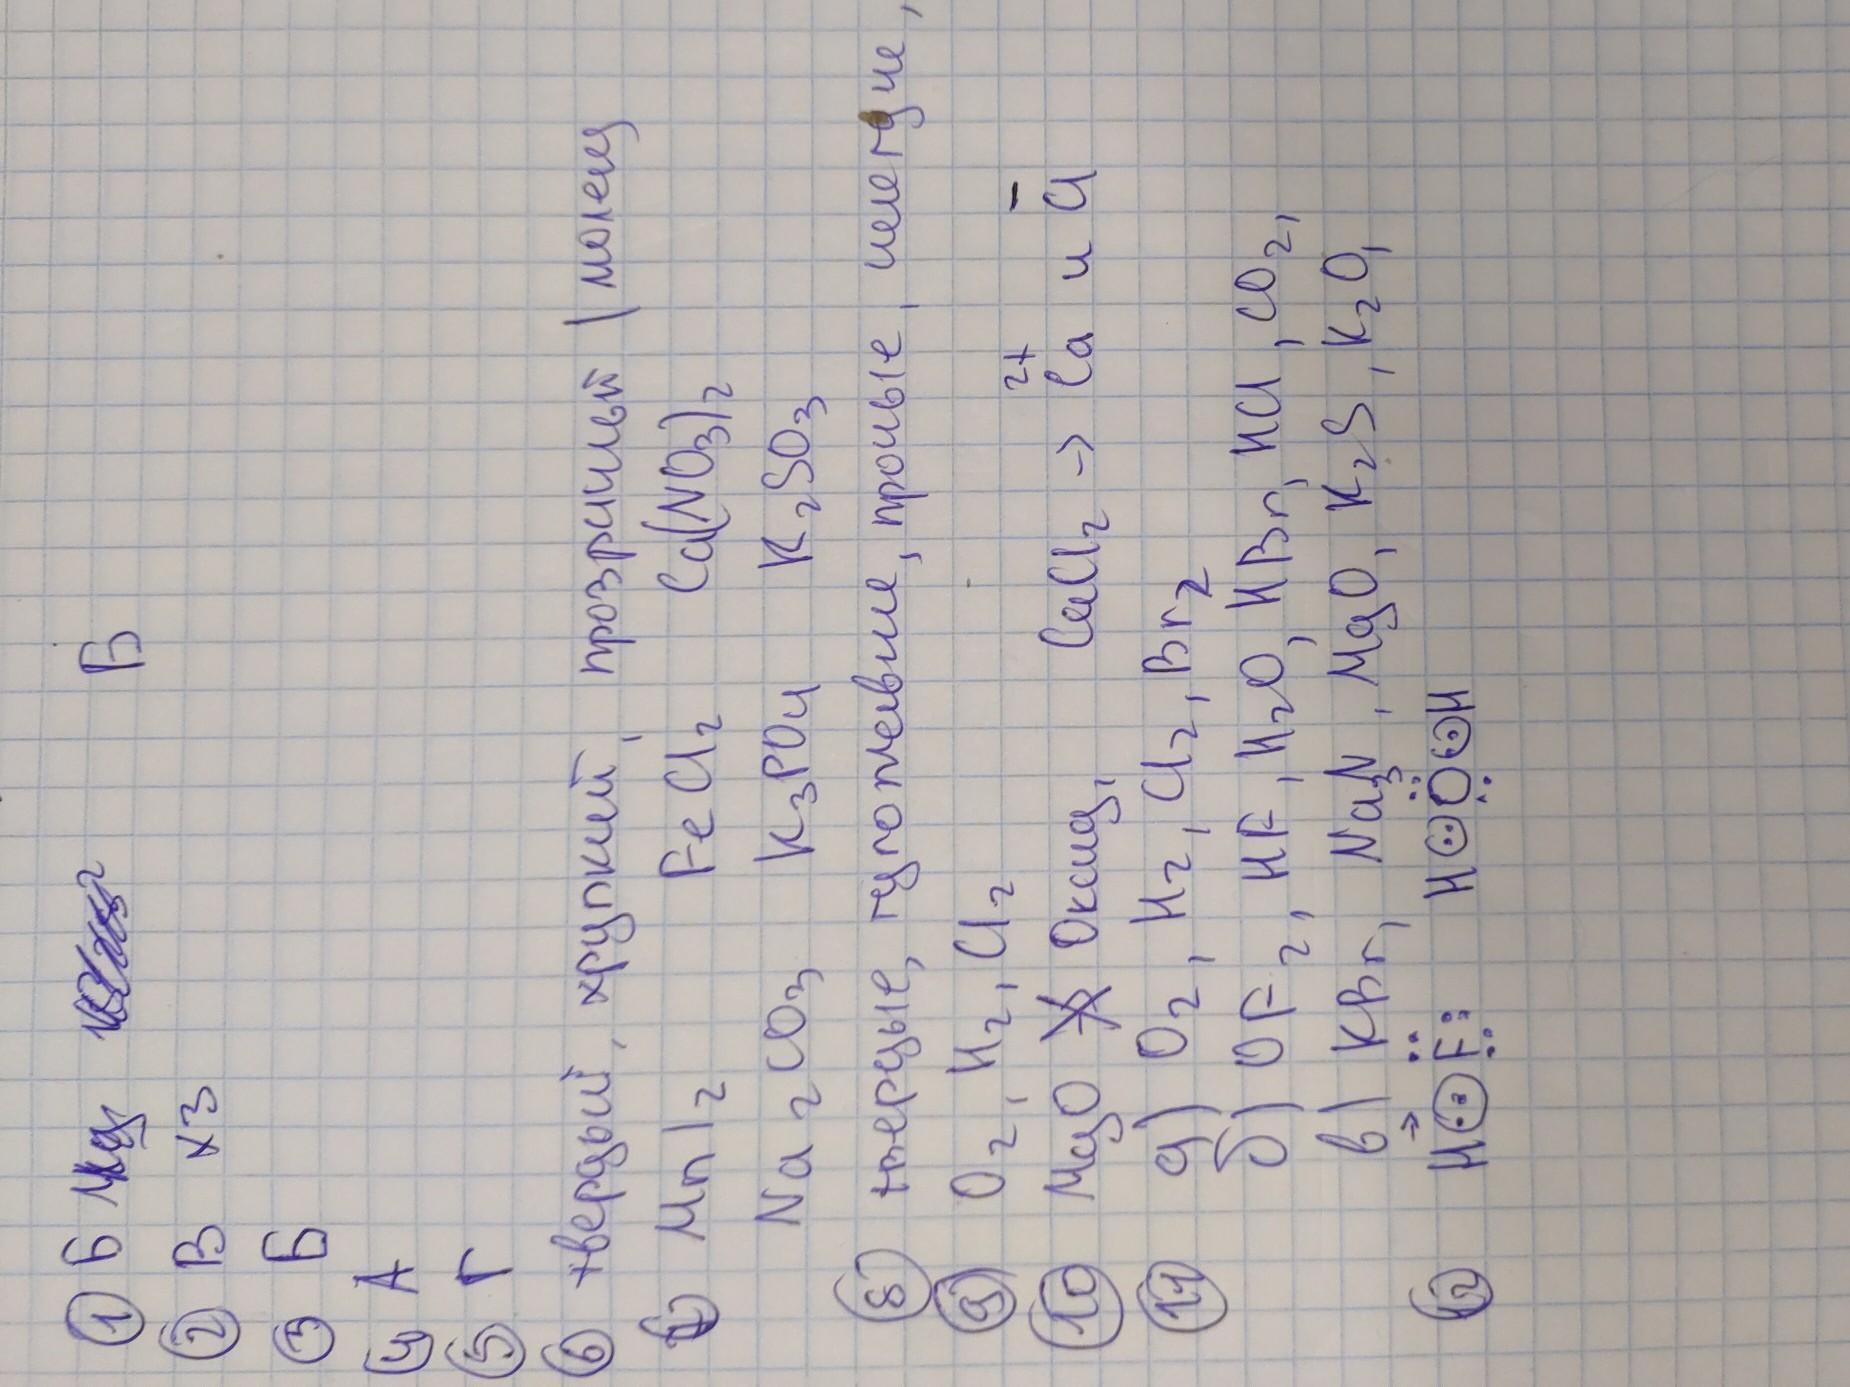 ① Б В
② В х3
③ Б
④ А
⑤ Г
⑥ твердый, хрупкий, прозрчный (молец
⑦ MnI2 FeCl2 Ca(NO3)2
Na2CO3 K3PO4 K2SO3
⑧ твердые, тугоплавкие, прочные,
⑨ O2, H2, Cl2
⑩ MgO Оксид, CaCl2 → Ca²⁺ и Cl⁻
⑪ а) O2, H2, Cl2, Br2
б) OF2, HF, H2O, HBr, HCl, CO2,
в) KBr, Na3N, MgO, K2S, K2O,
⑫ H:F: H:O:H